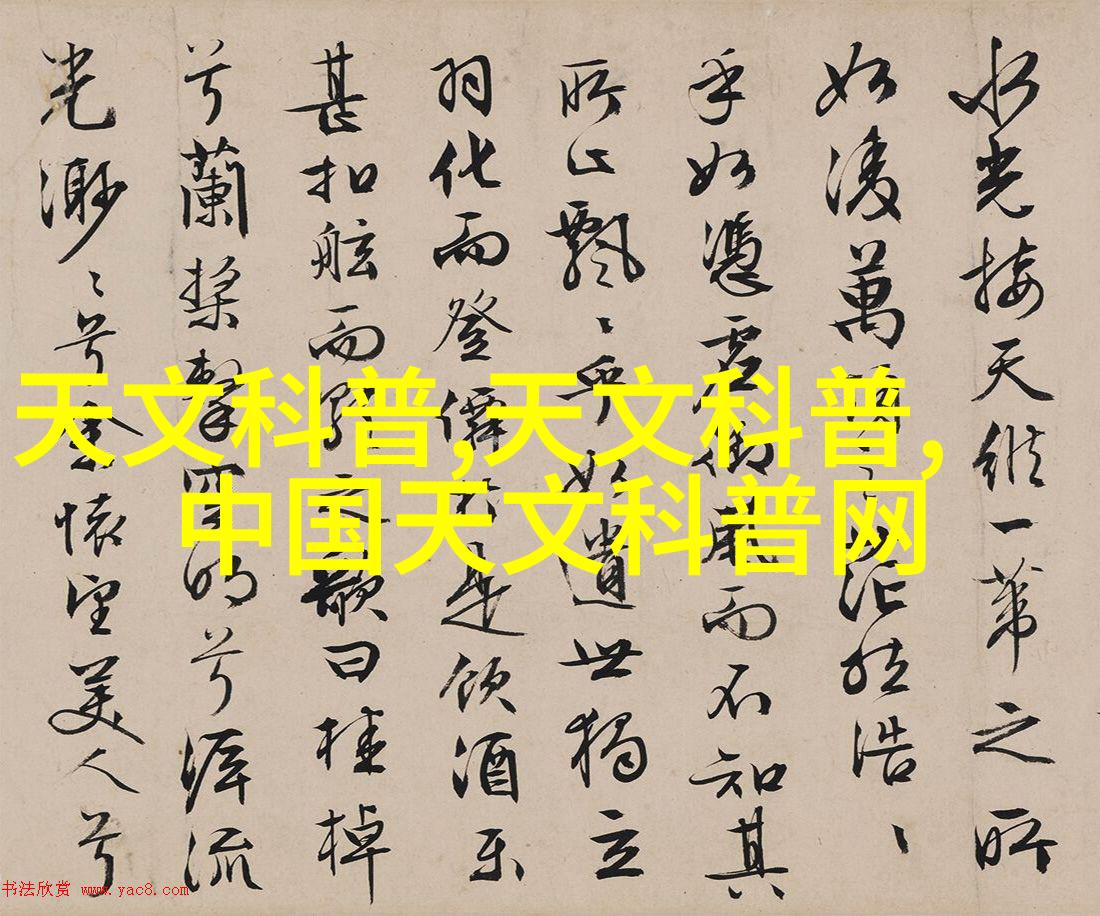 水光接天縱一葦之所
如凌萬頃之茫然浩〻
乎如憑虛御風而不知其
所止飄〻乎如遺世獨立
羽化而登僊於是飲酒樂
甚扣舷而歌之歌曰桂棹
兮蘭槳擊空明兮泝流
光渺〻兮余懷望美人兮
天文科普,天文科普,
中国天文科普网
书法欣赏 www.yac8.com